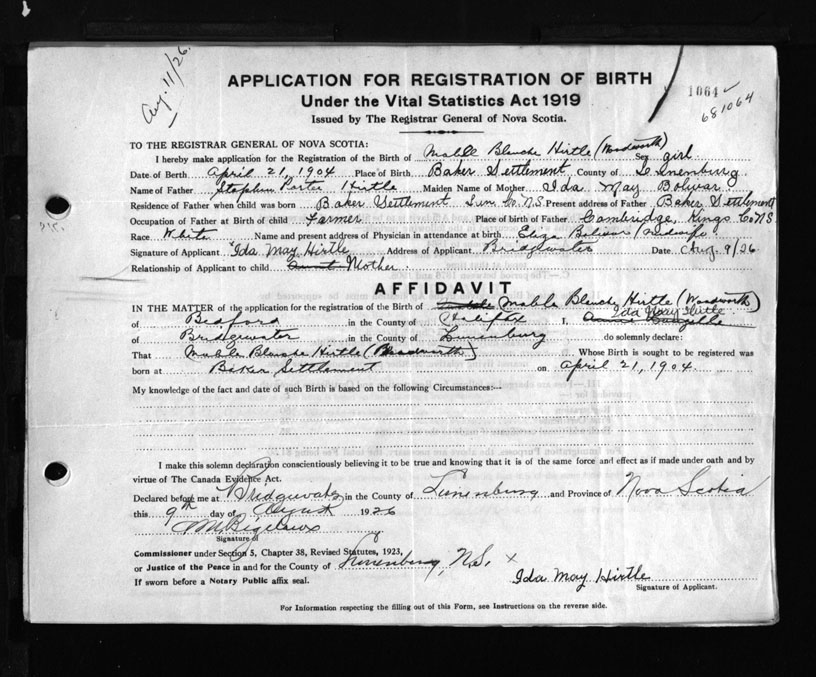 Aug. 11/26.
APPLICATION FOR REGISTRATION OF BIRTH
1064
681064
Under the Vital Statistics Act 1919
Issued by The Registrar General of Nova Scotia.
TO THE REGISTRAR GENERAL OF NOVA SCOTIA:
I hereby make application for the Registration of the Birth of Mable Blanche Hirtle (Woodworth) Sex girl
Date of Berth April 21, 1904 Place of Birth Baker Settlement County of Lunenburg
Name of Father Stephen Porter Hirtle Maiden Name of Mother Ida May Bolivar
Residence of Father when child was born Baker Settlement Lun. Co. N.S. Present address of Father Baker Settlement
Occupation of Father at Birth of child Farmer Place of birth of Father Cambridge, Kings Co. N.S.
Race White Name and present address of Physician in attendance at birth Eliza Bolivar (Midwife)
Signature of Applicant Ida May Hirtle Address of Applicant Bridgewater Date Aug. 9/26
Relationship of Applicant to child Aunt Mother
AFFIDAVIT
IN THE MATTER of the application for the registration of the Birth of Mable Blanche Hirtle (Woodworth)
of Bedford in the County of Halifax I, Ida May Hirtle
of Bridgewater in the County of Lunenburg do solemnly declare:
That Mable Blanche Hirtle (Woodworth) Whose Birth is sought to be registered was
born at Baker Settlement on April 21, 1904
My knowledge of the fact and date of such Birth is based on the following Circumstances:—
I make this solemn declaration conscientiously believing it to be true and knowing that it is of the same force and effect as if made under oath and by
virtue of The Canada Evidence Act.
Declared before me at Bridgewater in the County of Lunenburg and Province of Nova Scotia
this 9th day of August 1926
Signature of
Commissioner under Section 5, Chapter 38, Revised Statutes, 1923,
or Justice of the Peace in and for the County of Lunenburg, N.S. x
If sworn before a Notary Public affix seal.
Ida May Hirtle
Signature of Applicant.
For Information respecting the filling out of this Form, see Instructions on the reverse side.